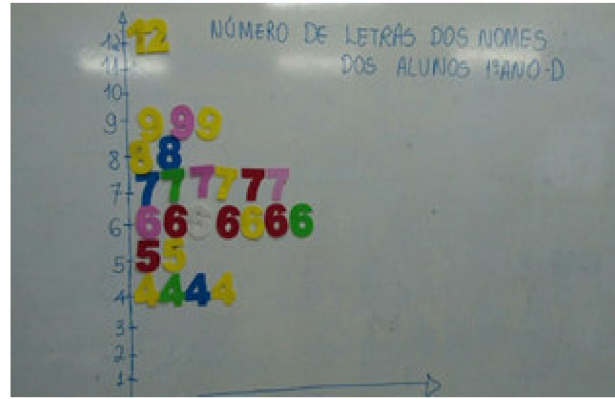 NÚMERO DE LETRAS DOS NOMES
DOS ALUNOS 1º ANO-D
12 12
11
10
9 9 9 9
8 8 8
7 7 7 7 7 7 7
6 6 6 6 6 6 6 6
5 5 5
4 4 4 4 4
3
2
1